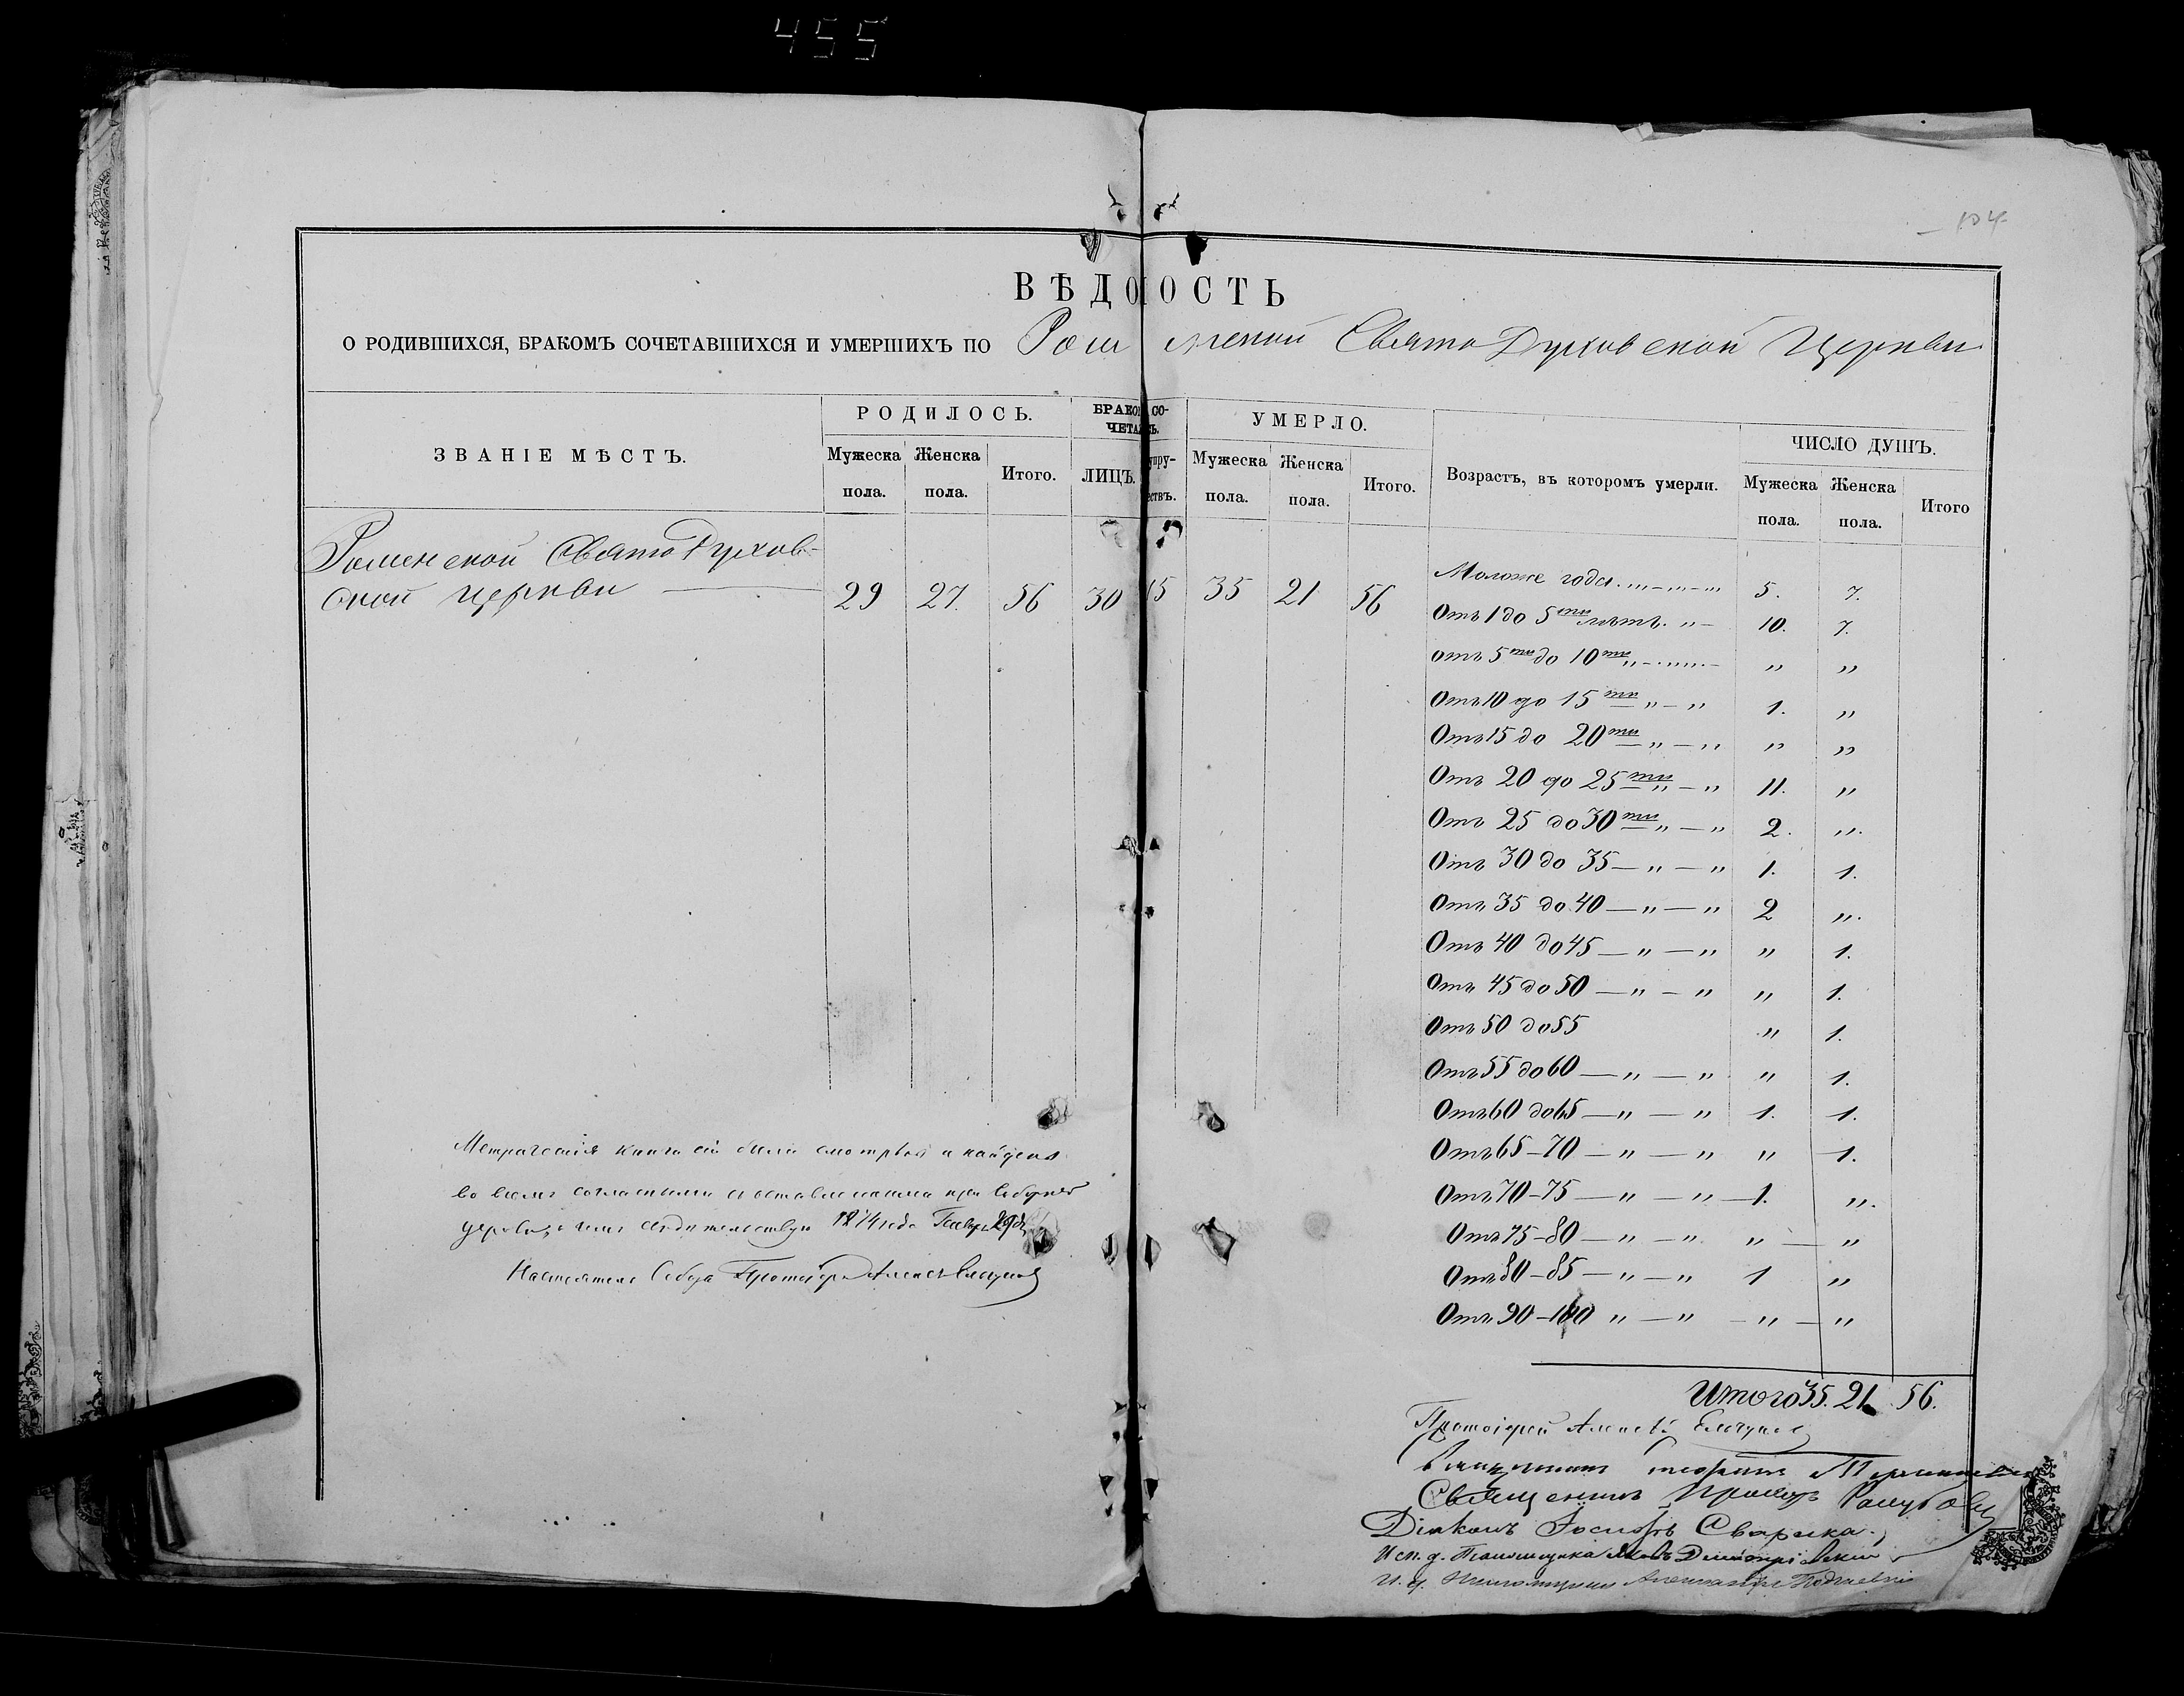 455
104
ВѢДОМОСТЬ
О РОДИВШИХСЯ, БРАКОМЪ СОЧЕТАВШИХСЯ И УМЕРШИХЪ ПО Роменской Свято Духовской Церкви
ЗВАНІЕ МѢСТЪ.
РОДИЛОСЬ.
Мужеска пола.
Женска пола.
Итого.
БРАКОМ СО-
ЧЕТАЛ Ъ.
ЛИЦЪ.
упру-
ествъ.
УМЕРЛО.
Мужеска пола.
Женска пола.
Итого.
Возрастъ, въ которомъ умерли.
ЧИСЛО ДУШЪ.
Мужеска пола.
Женска пола.
Итого
Роменской Свято Духов-
ской церкви — 29 27. 56 30 15 35 21 56
Моложе года. „ — „ — „ 5. 7.
Отъ 1 до 5ти лѣтъ. „ — 10. 7.
отъ 5ти до 10ти „ — „ — „ „
Отъ 10 до 15ти „ — „ 1. „
Отъ 15 до 20ти „ — „ „ „
Отъ 20 до 25ти „ — „ 11. „
Отъ 25 до 30ти „ — „ 2. „.
Отъ 30 до 35 — „ — „ 1. 1.
Отъ 35 до 40 — „ — „ 2 „.
Отъ 40 до 45 — „ — „ „ 1.
Отъ 45 до 50 — „ — „ „ 1.
Отъ 50 до 55 „ 1.
Отъ 55 до 60 — „ — „ „ 1.
Отъ 60 до 65 — „ — „ 1. 1.
Отъ 65 – 70 — „ — „ „ 1.
Отъ 70 – 75 — „ — „ — 1. „.
Отъ 75 – 80 — „ — „ „ — „
Отъ 80 – 85 — „ — „ 1 „
Отъ 90 – 100 „ — „ — „ — „
Итого 35. 21. 56.
книга сія были и найдена
во всемъ при
1874 года 29 дня
Настоятель Собора Протоіерей Алексѣй
Протоіерей Алексѣй
Священникъ
Священникъ
Діаконъ Іосифъ Сварика.
Исп. д. Псаломщика Яковъ Дмитріевскій
И. д. Псаломщика Александръ